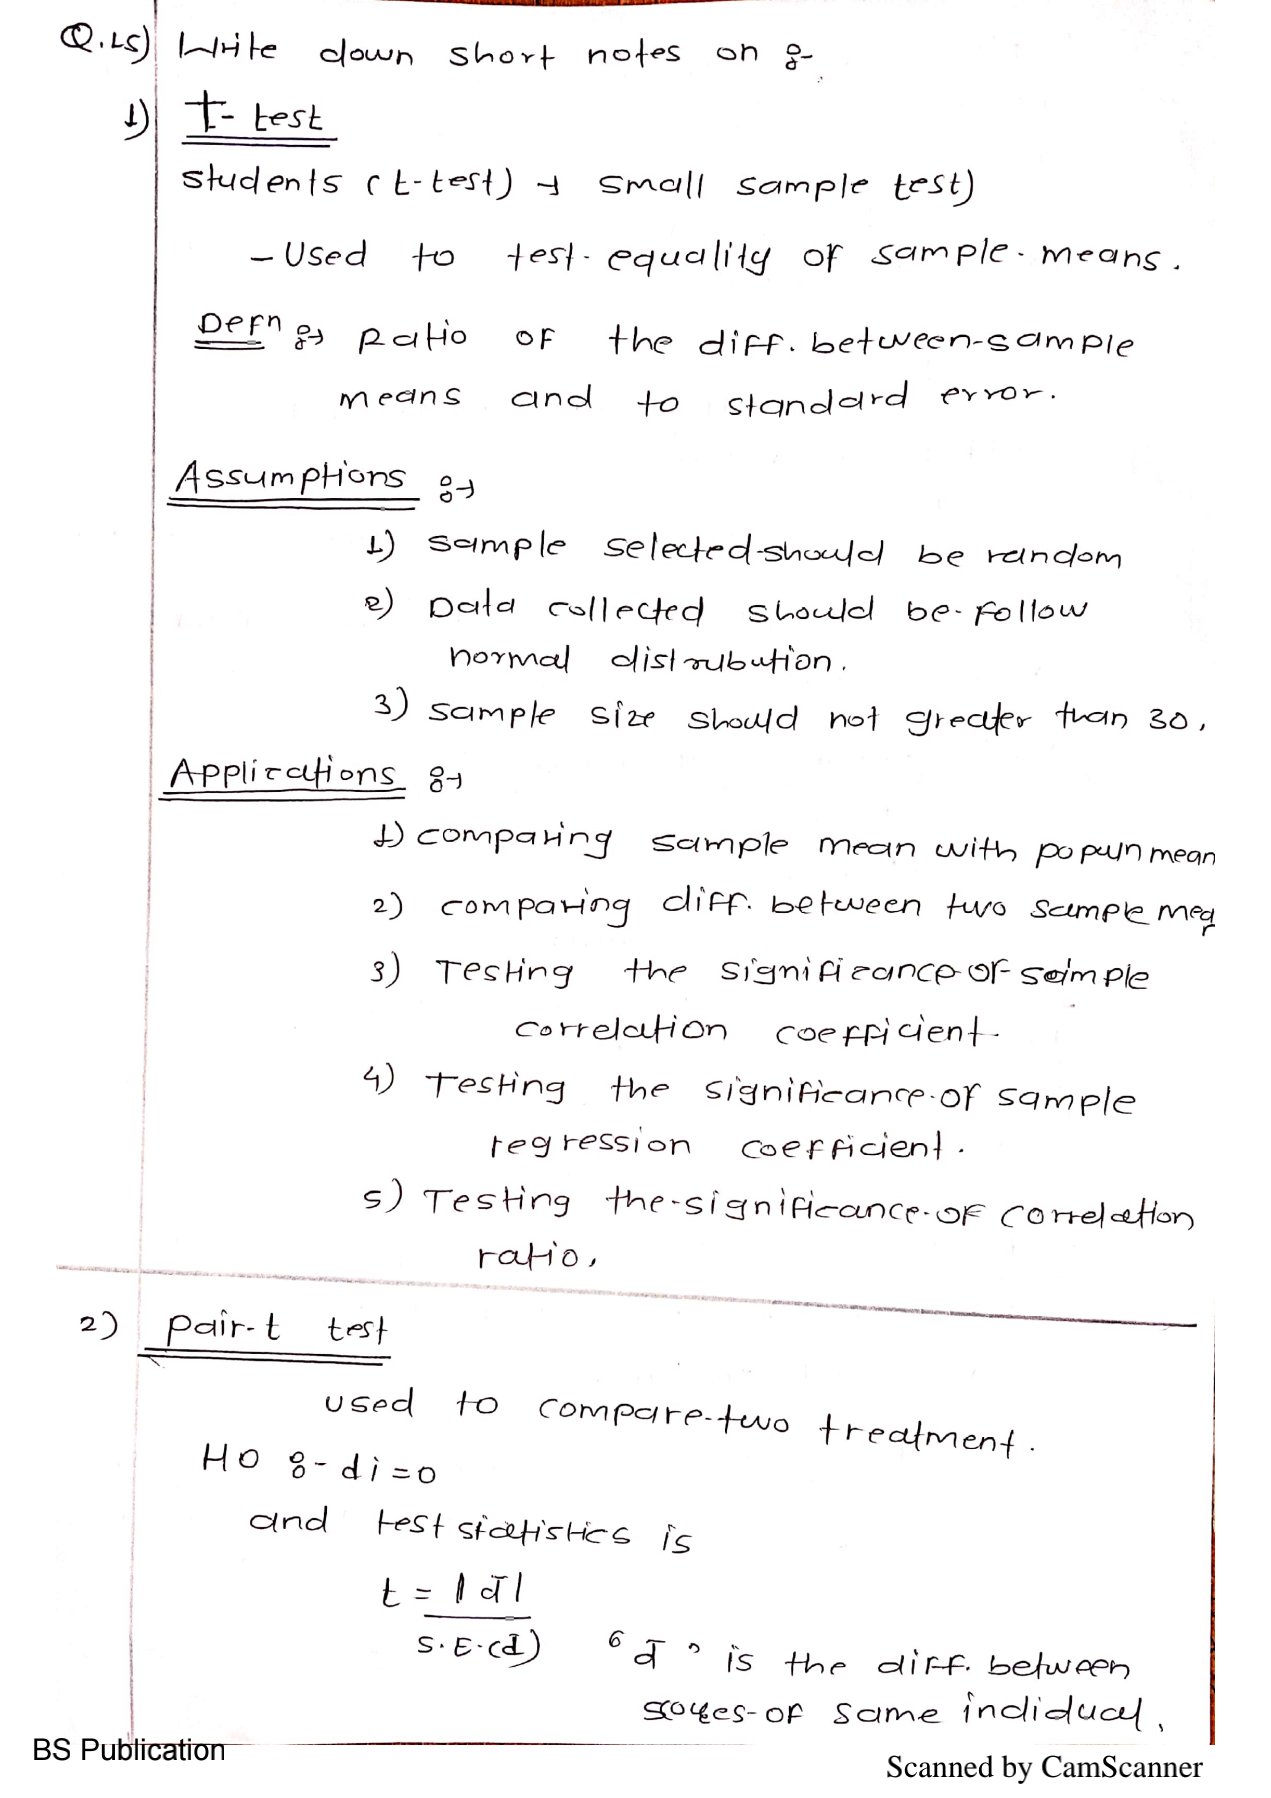 Q.15) Write down short notes on :-
1) t- test
students (t-test) → small sample test)
- Used to test equality of sample means.
Defn :→ Ratio of the diff. between sample
means and to standard error.
Assumptions :→
1) sample selected should be random
2) Data collected should be follow
normal distrubution.
3) sample size should not greater than 30.
Applications :→
1) comparing sample mean with popun mean
2) comparing diff. between two sample mea
3) Testing the significance of sample
correlation coefficient.
4) Testing the significance of sample
regression coefficient.
5) Testing the significance of correlation
ratio.
2) pair-t test
used to compare two treatment.
H0 :- di = 0
and test statistics is
t = |d̄|
S.E.(d̄) ‘d̄’ is the diff. between
scores of same indidual.
BS Publication
Scanned by CamScanner